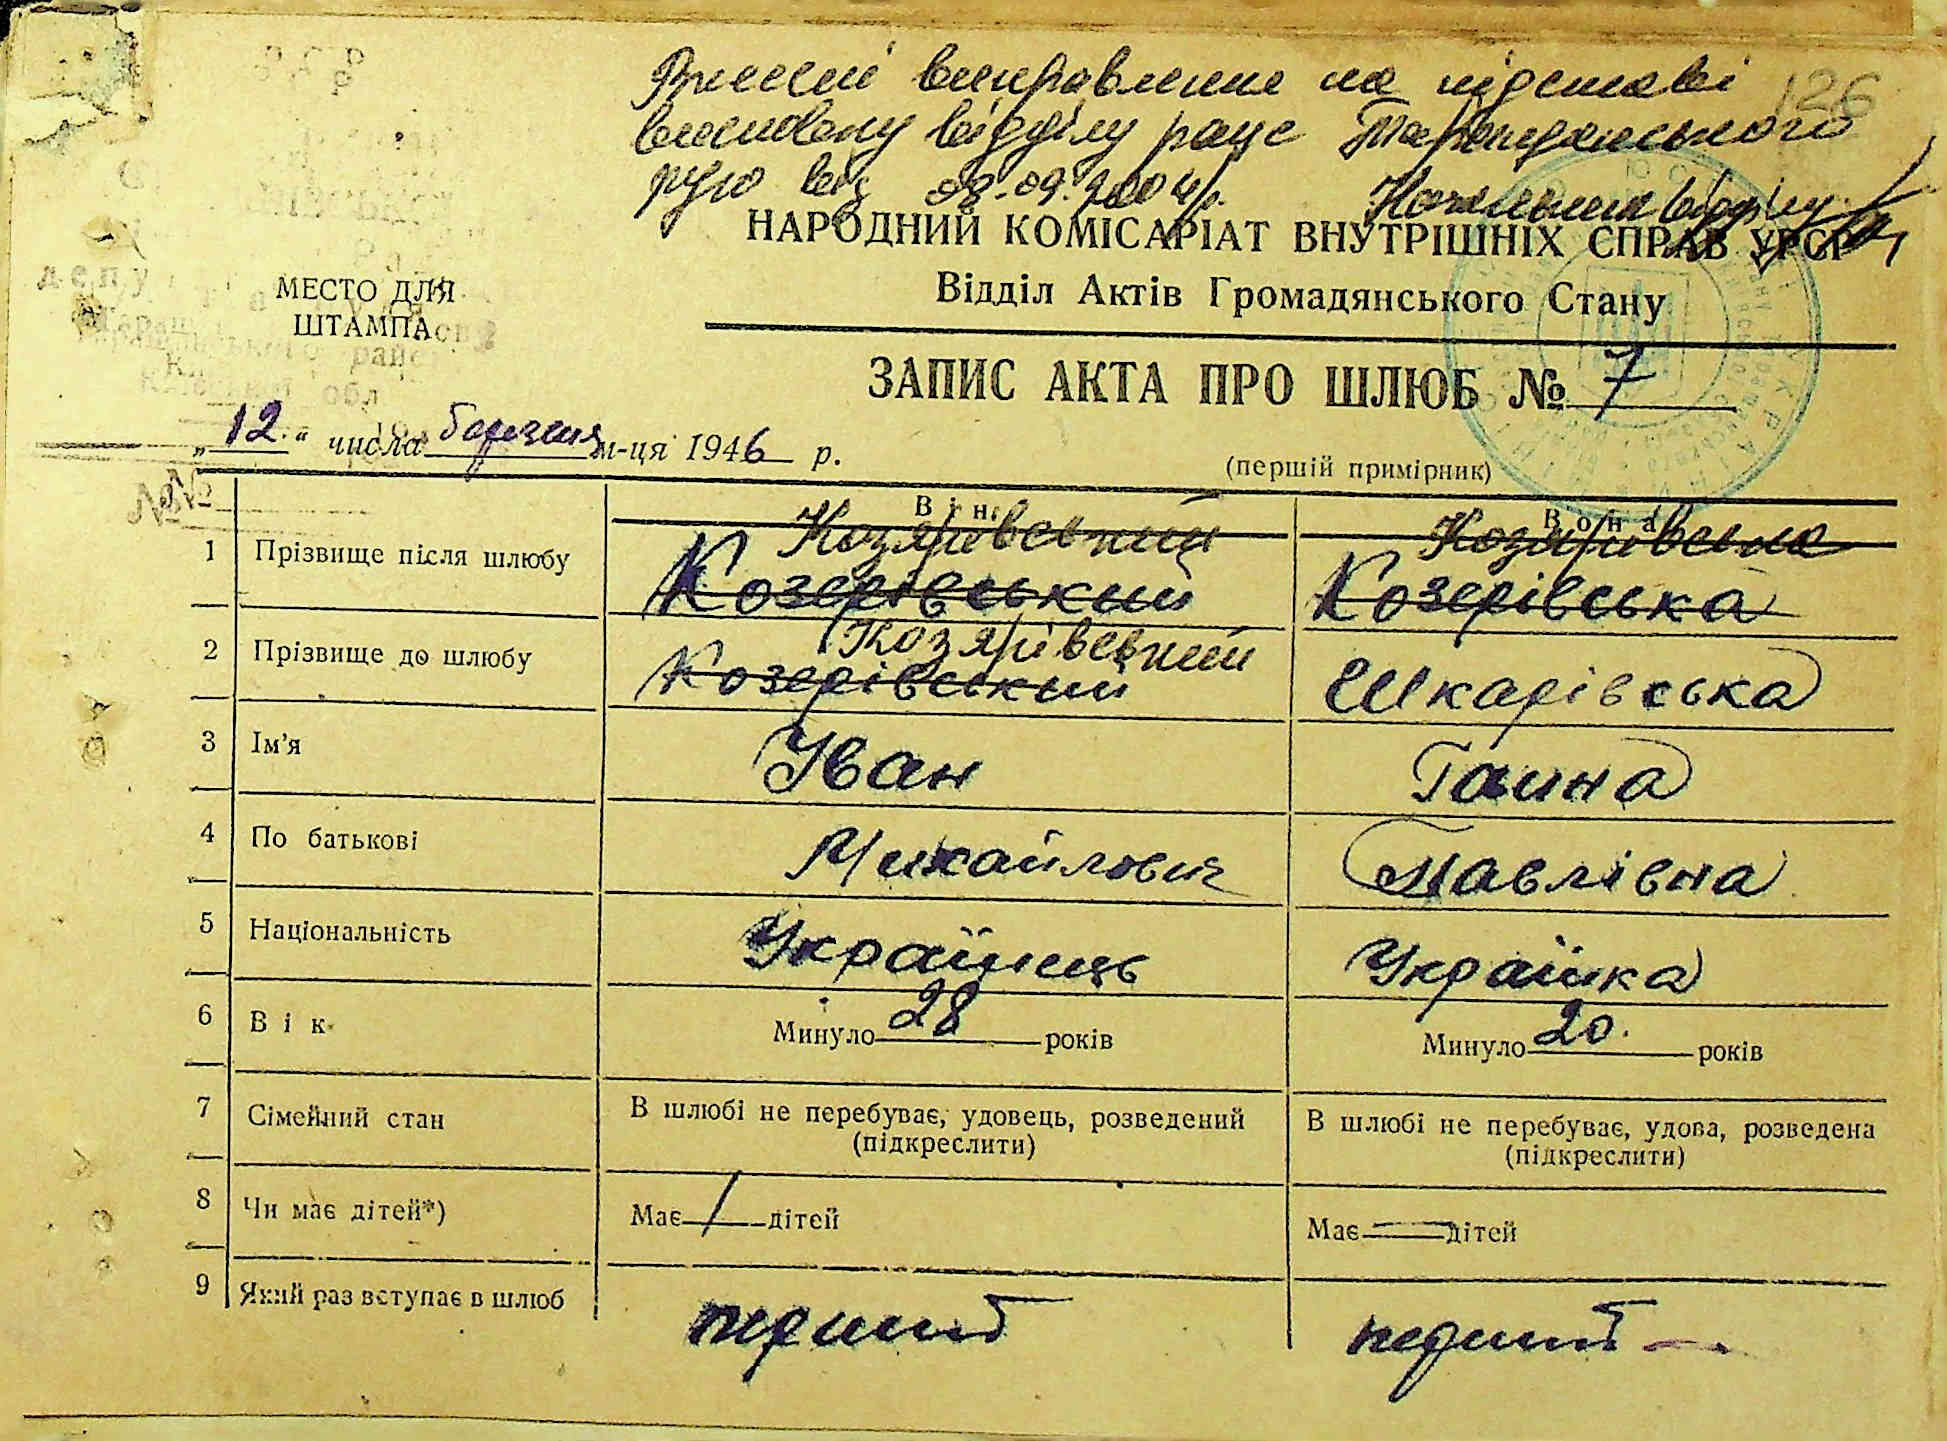 126
Внесені виправлення на підставі
висновку відділу рацс Таращанського
рую від 08.09.2004р. Начальник відділу
НАРОДНИЙ КОМІСАРІАТ ВНУТРІШНІХ СПРАВ УРСР
Відділ Актів Громадянського Стану
МЕСТО ДЛЯ
ШТАМПА
ЗАПИС АКТА ПРО ШЛЮБ № 7
„12.“ числа березня м-ця 1946 р.
(першій примірник)
Він Вона
Козярівський Козярівська
1 Прізвище після шлюбу Козерівський Козерівська
Козярівський
2 Прізвище до шлюбу Козерівський Шкарівська
3 Ім'я Іван Ганна
4 По батькові Михайлович Павлівна
5 Національність Українець Українка
6 Вік Минуло 28 років Минуло 20. років
7 Сімейний стан В шлюбі не перебуває, удовець, розведений В шлюбі не перебуває, удова, розведена
(підкреслити) (підкреслити)
8 Чи має дітей*) Має / дітей Має — дітей
9 Який раз вступає в шлюб перший перший —